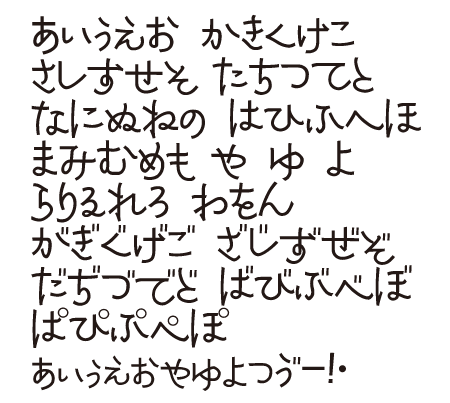 あいうえお かきくけこ
さしすせそ たちつてと
なにぬねの はひふへほ
まみむめも や ゆ よ
らりるれろ わをん
がぎぐげご ざじずぜぞ
だぢづでど ばびぶべぼ
ぱぴぷぺぽ
ぁぃぅぇぉゃゅょっゔー!・